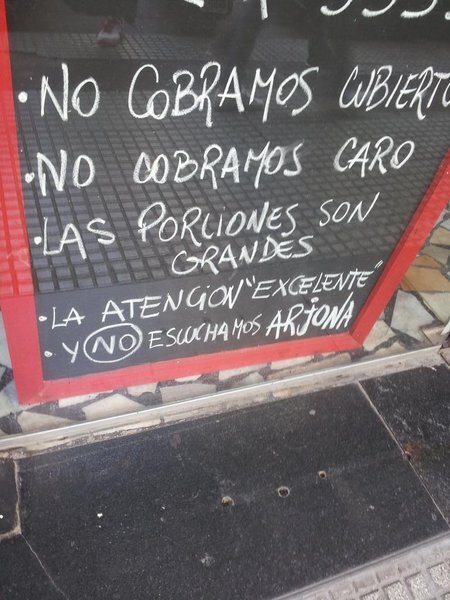 · NO COBRAMOS CUBIERTO
· NO COBRAMOS CARO
· LAS PORCIONES SON
GRANDES
· LA ATENCION "EXCELENTE"
· Y NO ESCUCHAMOS ARJONA